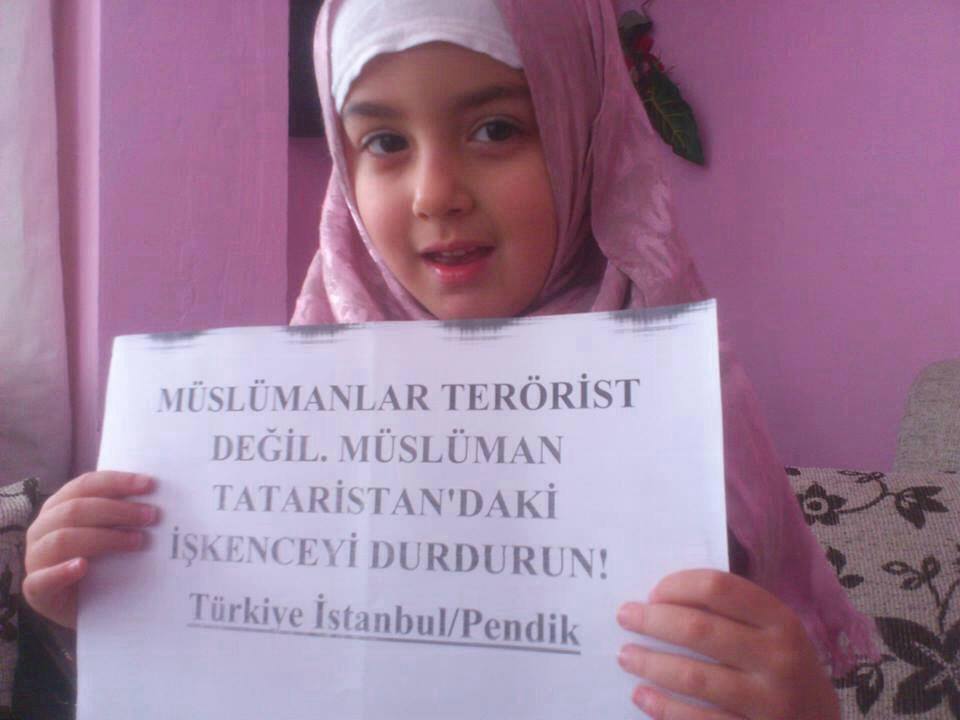 MÜSLÜMANLAR TERÖRİST
DEĞİL. MÜSLÜMAN
TATARİSTAN'DAKİ
İŞKENCEYİ DURDURUN!
Türkiye İstanbul/Pendik